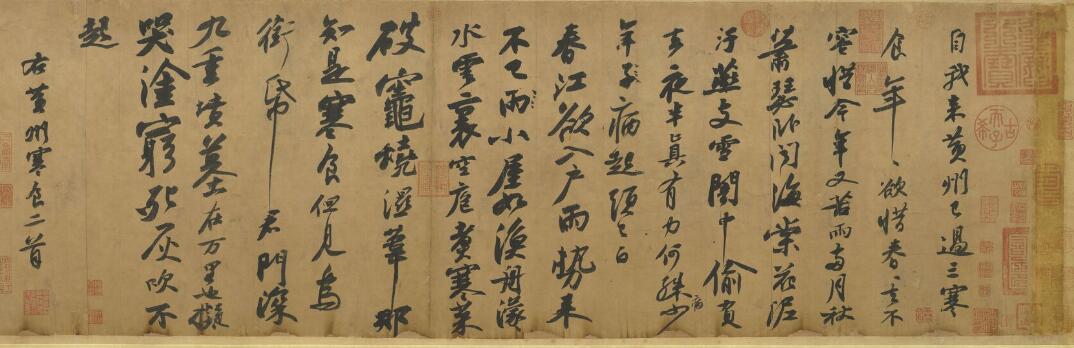 自我来黄州已過三寒
食年〻欲惜春〻去不
容惜今年又苦雨兩月秋
蕭瑟卧聞海棠花泥
汙燕支雪闇中偷負
去夜半真有力何殊少
病
年子病起頭已白
春江欲入戶雨勢来
不已雨小屋如漁舟濛〻
水雲裏空庖煮寒菜
破竈燒濕葦那
知是寒食但見烏
銜帋君門深
九重墳墓在万里也擬
哭塗窮死灰吹不
起
右黄州寒食二首
古希天子